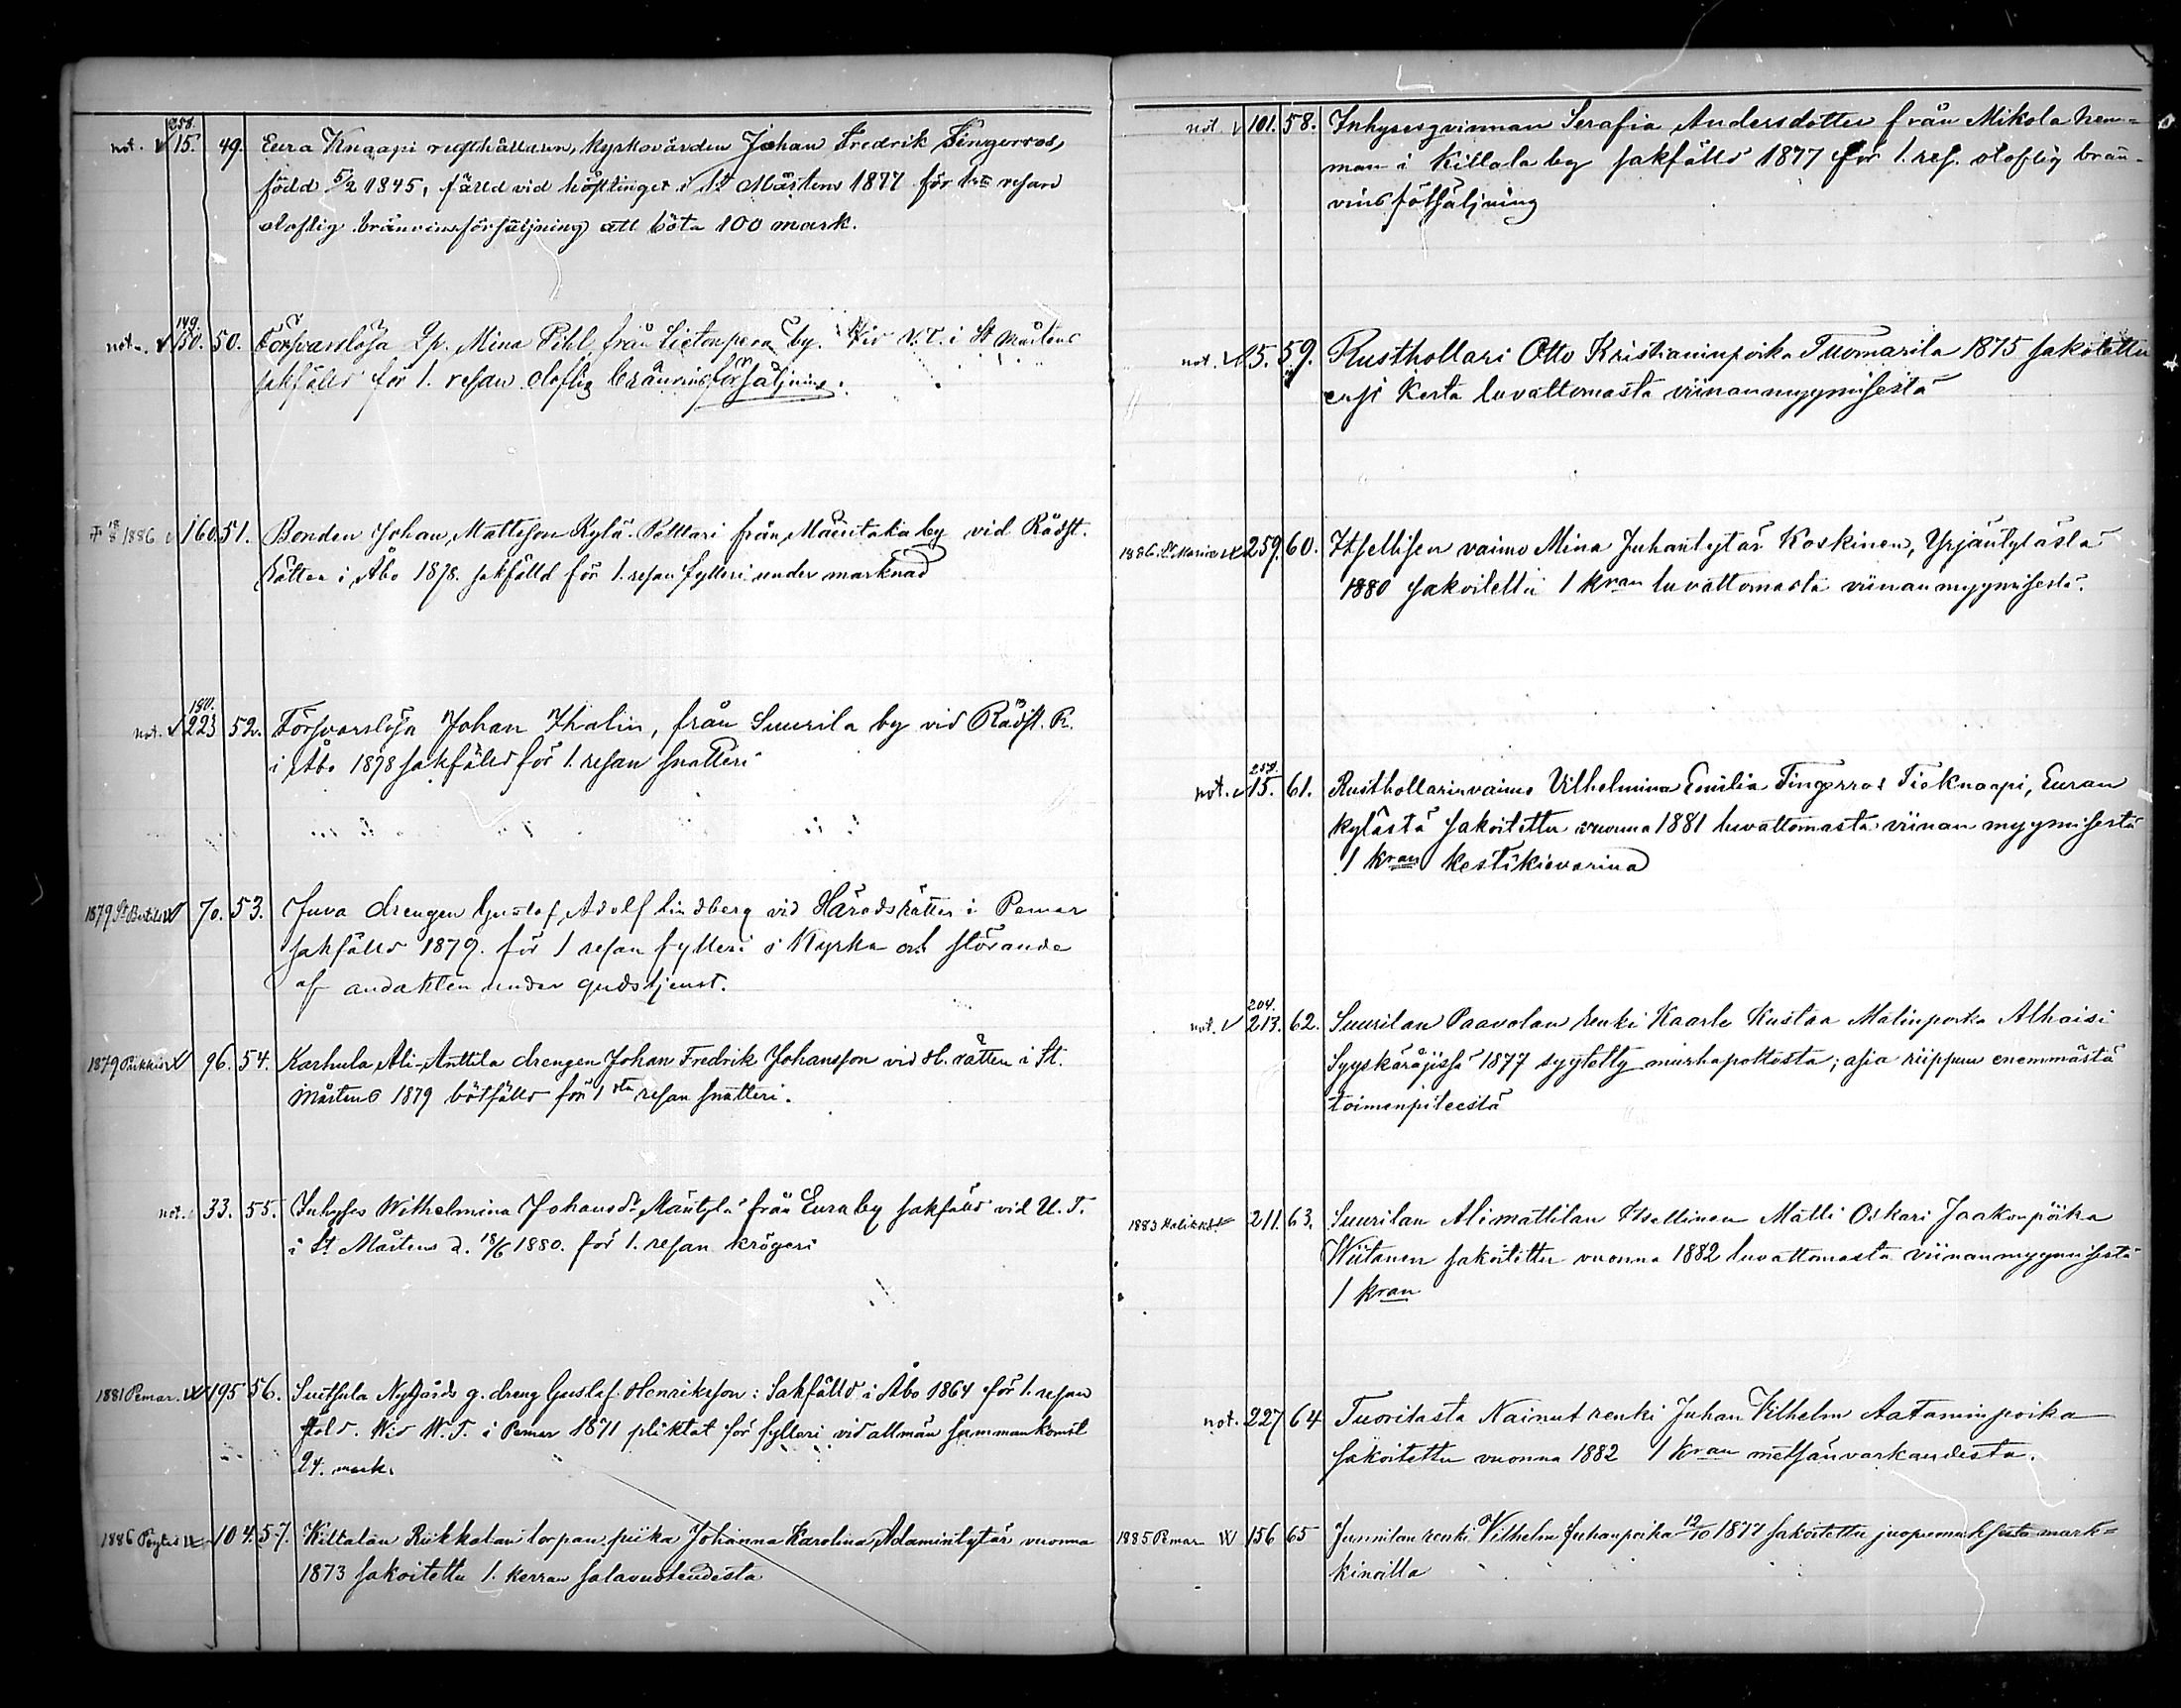 258.
not. v 15. 49. Eura Knaapi rusthållaren, kyrkovärden Johan Fredrik Fingerros,
född 5/2 1845, fälld vid hösttinget i St Mårtens 1877 för 1sta resan
oloflig bränvinsförsäljning att böta 100 mark.
149.
not. v 150. 50. Försvarslösa Qp. Mina Pihl från Lietonperä by. Vid V.T. i St Mårtens
sakfälld för 1. resan oloflig bränvinsförsäljning.
† 18/8 1886 v 160. 51. Bonden Johan Mattsson Kylä-Pelttari från Mäentaka by vid Rådst.
Rätten i Åbo 1878. sakfälld för 1. resan fylleri under marknad
190.
not. v 223 52. Försvarslösa Johan Thalin, från Suurila by vid Rådst. R.
i Åbo 1878 sakfälld för 1. resan snatteri
1879 St Bertils v 70. 53. Juva drengen Gustaf Adolf Lindberg vid Häradsrätten i Pemar
sakfälld 1879. för 1 resan fylleri i Kyrka och störande
af andakten under gudstjenst.
1879 Piikkiö v 96. 54. Karhula Ali-Anttila drengen Johan Fredrik Johansson vid H. rätten i St.
Mårtens 1879 bötfälld för 1sta resan snatteri.
not. 33. 55. Inhyses Wilhelmina Johansdr Mäntylä från Eura by sakfälld vid U. T.
i St Mårtens d. 18/6 1880. för 1. resan krögeri
1881 Pemar. v 195 56. Nygårds g. dreng Gustaf Henriksson: Sakfälld i Åbo 1864 för 1. resan
stöld. Vid W. T. i Pemar 1871 pliktat för fylleri vid allmän sammankomst
24. mark.
1886 Pöytis v 104. 57. Killalan Riikkalan torpan piika Johanna Karolina Adamintytär vuonna
1873 sakoitettu 1. kerran salavuoteudesta
not. v 101. 58. Inhysesqvinnan Serafia Andersdotter från Mikola hem-
man i Killala by sakfälld 1877 för 1. res. oloflig brän-
vinsförsäljning
not. v 15. 59. Rusthollari Otto Kristianinpoika Tuomarila 1875 sakotettu
ensi kerta luvattomasta viinanmyymisestä
1886. St. Marie v 259. 60. Itsellisen vaimo Mina Juhantytär Koskinen, Yrjäntylästä
1880 sakoitettu 1 kran luvattomasta viinanmyymisestä.
258.
not. v 15. 61. Rusthollarinvaimo Vilhelmina Emilia Fingerros Tieknaapi, Euran
kylästä sakoitettu vuonna 1881 luvattomasta viinan myymisestä
1 kran kestikievarina
204.
not. v 213. 62. Suurilan Paavolan renki Kaarle Kustaa Matinpoika Alhaisi
Syyskäräjissä 1877 syytetty murhapoltosta; asia riippuu enemmästä
toimenpiteestä
1883 Halikko 211. 63. Suurilan Alimattilan Itsellinen Matti Oskari Jaakonpoika
Wiitanen sakoitettu vuonna 1882 luvattomasta viinanmyymisestä
1 kran
not. 227 64 Tuorilasta Nainut renki Juhan Vilhelm Aataminpoika
sakoitettu vuonna 1882 1 kran metsänvarkaudesta.
1885 Pemar v 156 65 Junnilan renki Vilhelm Juhanpoika 12/10 1877 sakoitettu juopumuksesta mark-
kinoilla